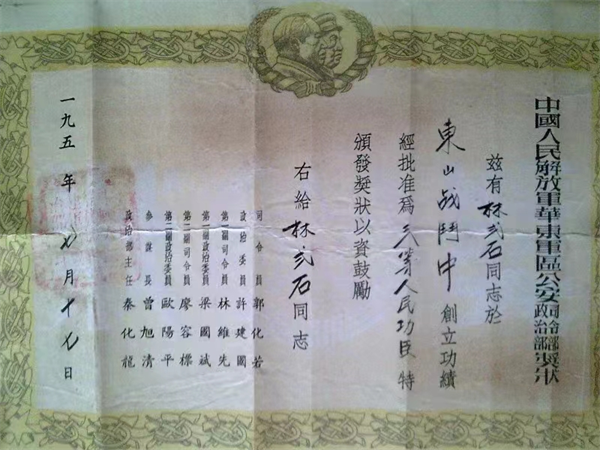 中國人民解放軍華東軍區公安司令部政治部獎狀
茲有林弍石同志於
東山战鬥中創立功績
經批准爲三等人民功臣特
頒發獎狀以資鼓勵
右給林弍石同志
司令員郭化若
政治委員許建國
第一副司令員林維先
第一副政治委員梁國斌
第二副司令員廖容標
第二副政治委員歐陽平
參謀長曾旭清
政治部主任秦化龍
一九五 年 月十 日